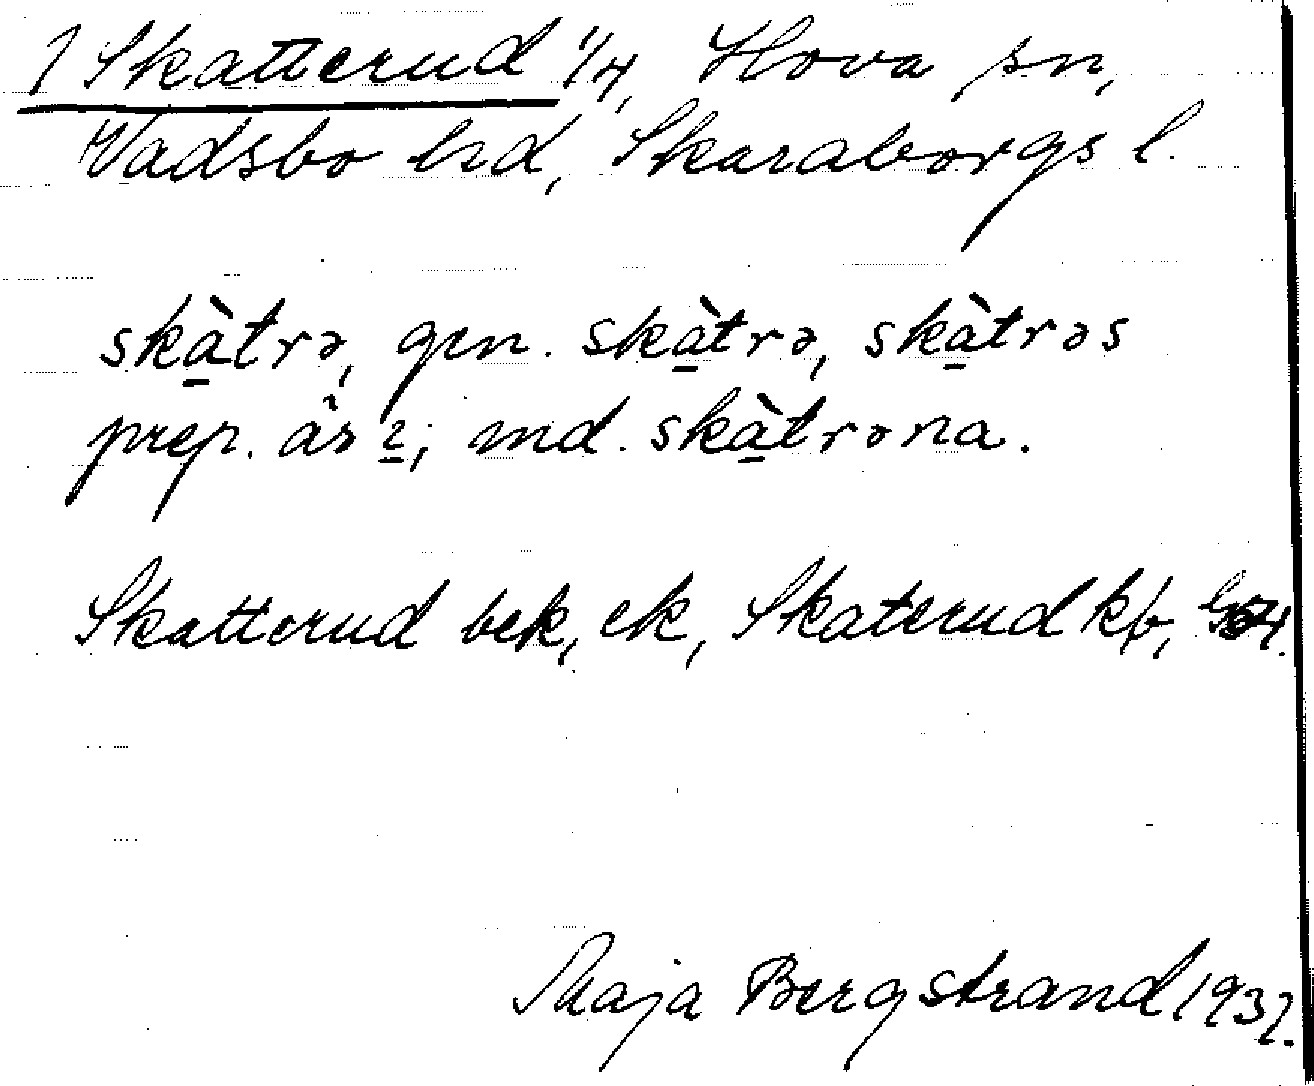 1 Skatterud 1/4, Hova sn,
Wadsbo hrd, Skaraborgs l.
skà̱trə, gen. skà̱trə, skà̱trəs
prep. är i; md. skà̱trəna.
Skatterud bek, ek, Skaterud kb,
Maja Bergstrand 1937.